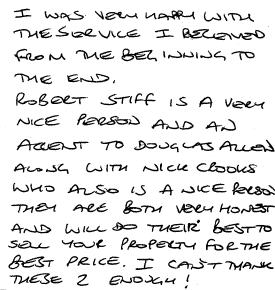 I WAS VERY HAPPY WITH
THE SERVICE I RECEIVED
FROM THE BEGINNING TO
THE END.
ROBERT STIFF IS A VERY
NICE PERSON AND AN
ACCENT TO DOUGLAS ALLEN
ALONG WITH NICK CROOKS
WHO ALSO IS A NICE PERSON
THEY ARE BOTH VERY HONEST
AND WILL DO THEIR BEST TO
SELL YOUR PROPERTY FOR THE
BEST PRICE. I CAN'T THANK
THESE 2 ENOUGH!